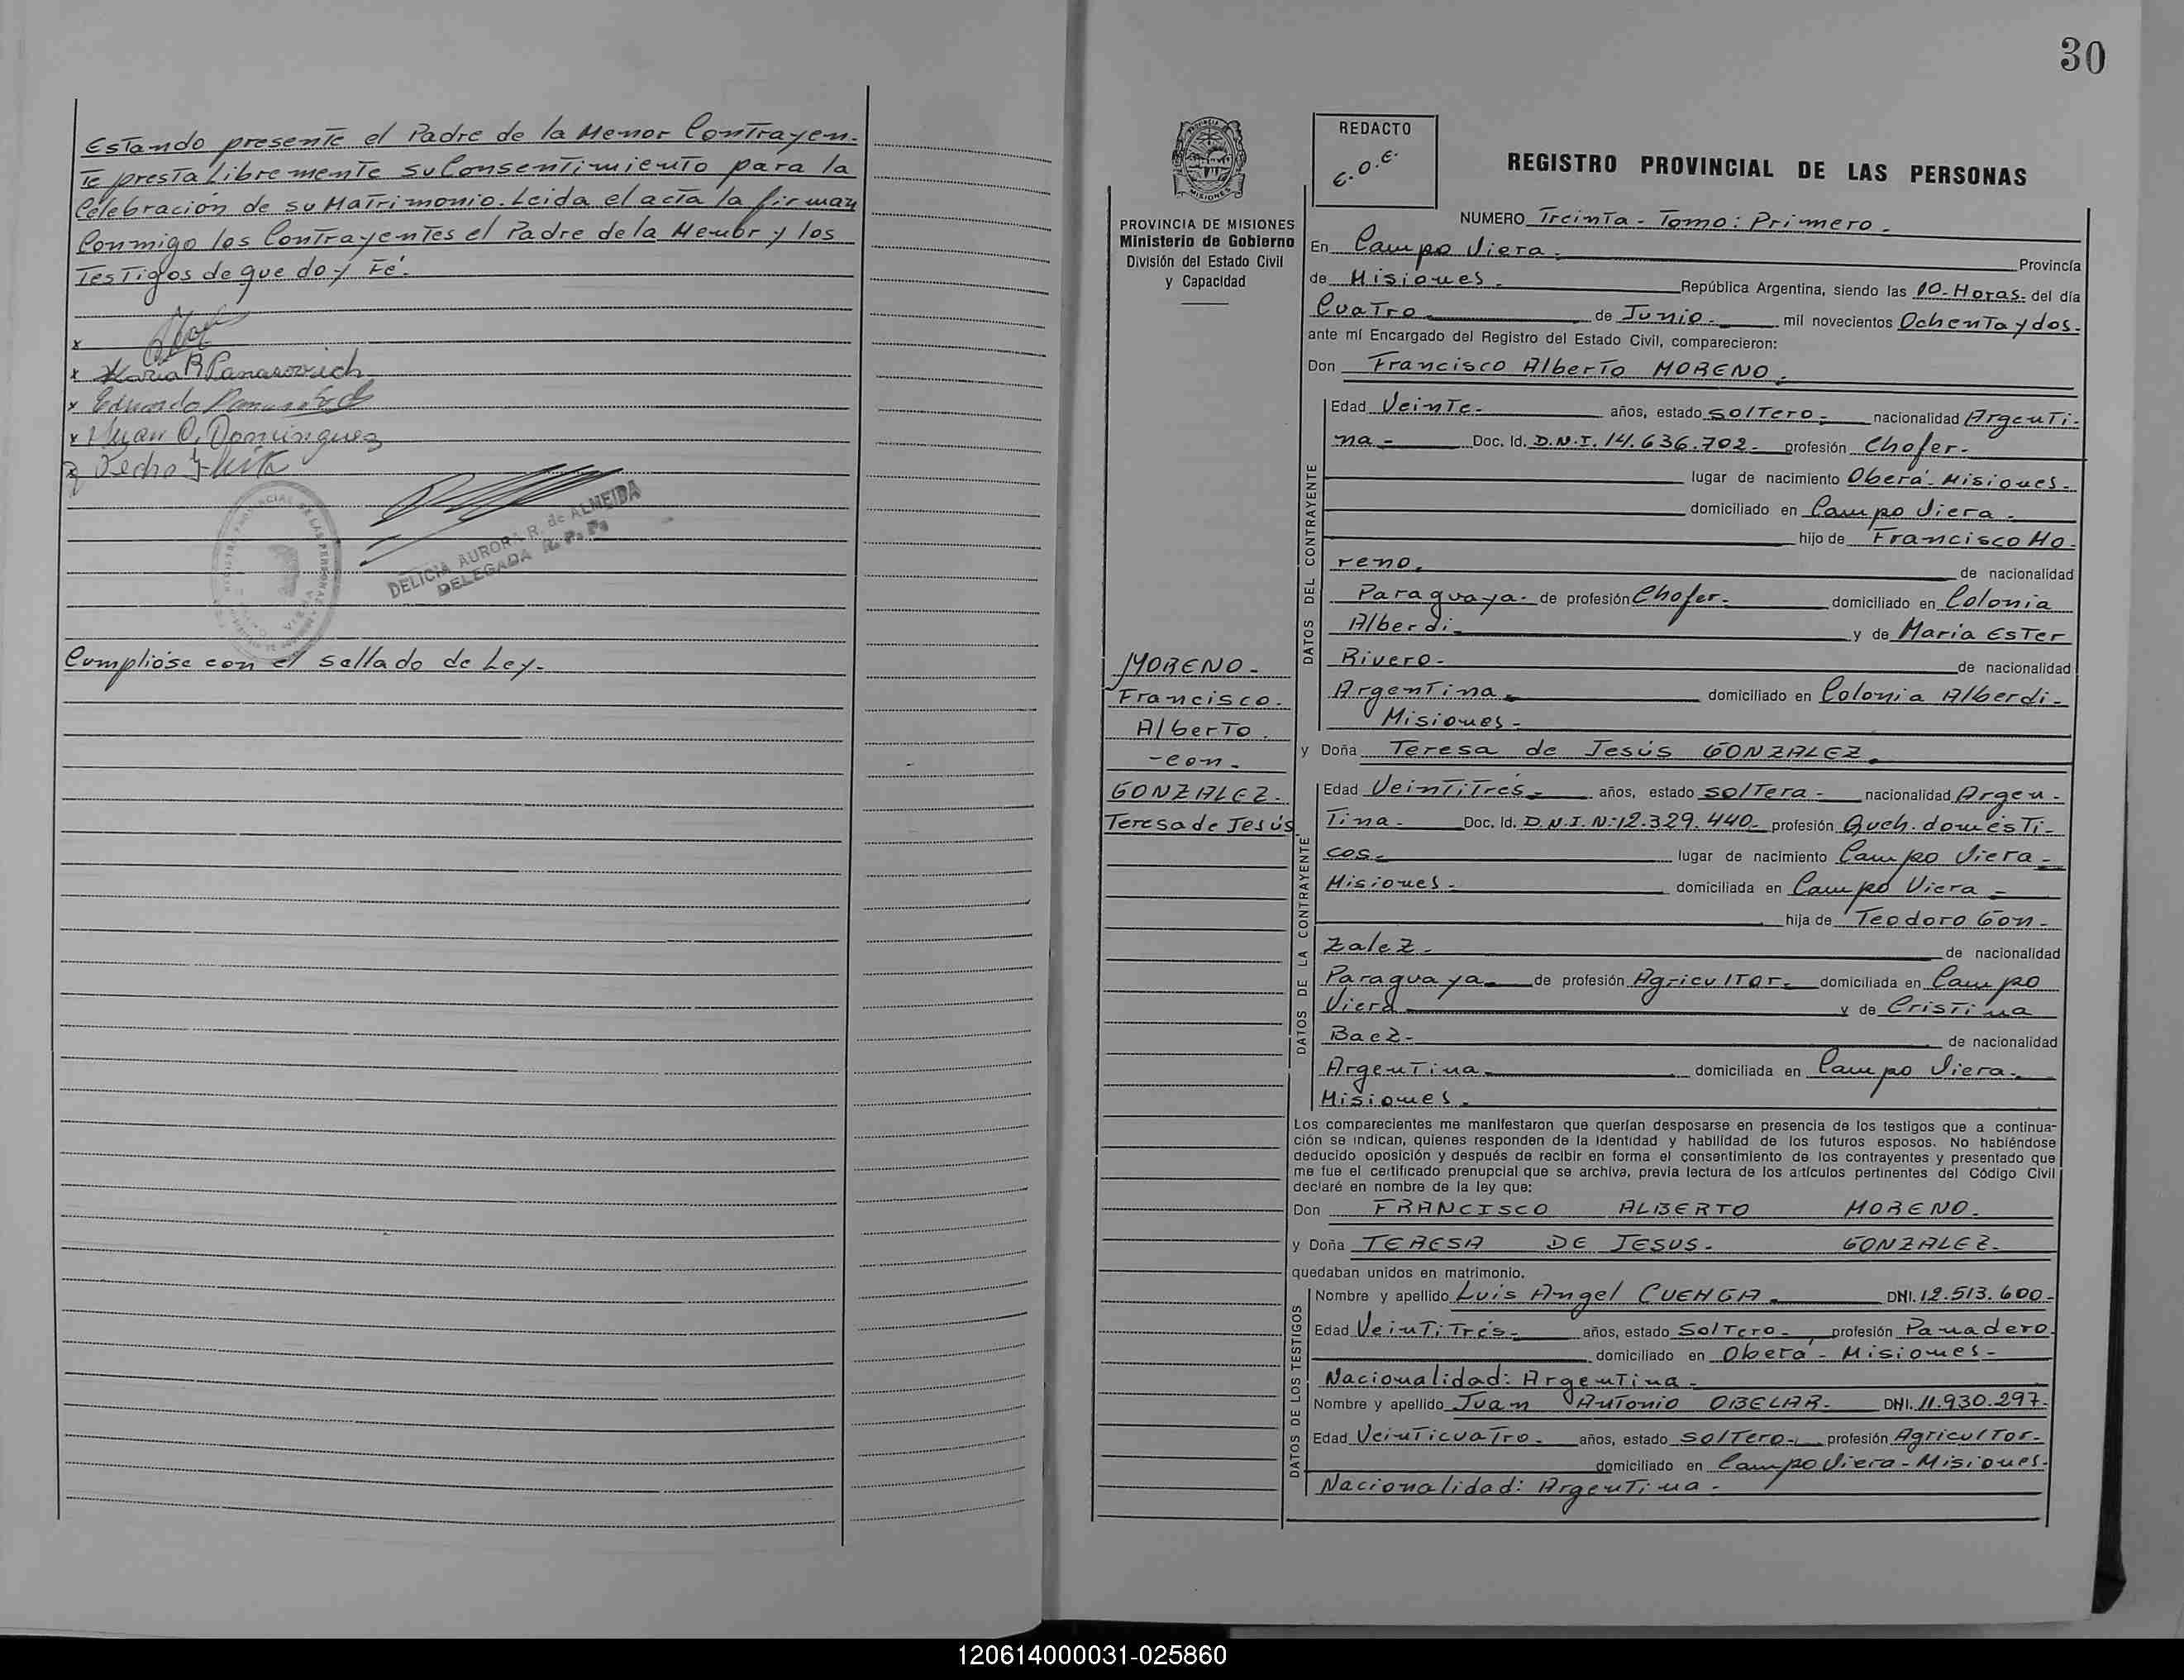 Estando presente el Padre de la Menor Contrayen-
te presta Libremente su Consentimiento para la
Celebración de su Matrimonio. Leida el acta la firman
Conmigo los Contrayentes el Padre de la Menor y los
Testigos de que doy Fé.
x
x Maria R Panasovich
x Eduardo
x Juan O. Dominguez
Pedro
DELICIA AURORA R. de ALMEIDA
DELEGADA R. P. P.
Cumplióse con el sellado de Ley-
30
REDACTO
E.O.E.
REGISTRO PROVINCIAL DE LAS PERSONAS
PROVINCIA DE MISIONES
Ministerio de Gobierno
División del Estado Civil
y Capacidad
MORENO-
Francisco.
Alberto.
-con-
GONZALEZ-
Teresa de Jesús
NUMERO Treinta- Tomo: Primero.
En Campo Viera. Provincia
de Misiones- República Argentina, siendo las 10-Horas- del día
Cuatro de Junio- mil novecientos Ochenta y dos-
ante mí Encargado del Registro del Estado Civil, comparecieron:
Don Francisco Alberto MORENO.
DATOS DEL CONTRAYENTE
Edad Veinte- años, estado soltero- nacionalidad Argenti-
na- Doc. Id. D.N.I. 14.636.702- profesión Chofer-
lugar de nacimiento Oberá- Misiones-
domiciliado en Campo Viera-
hijo de Francisco Mo-
reno. de nacionalidad
Paraguaya- de profesión Chofer- domiciliado en Colonia
Alberdi- y de Maria Ester
Rivero- de nacionalidad
Argentina- domiciliado en Colonia Alberdi-
Misiones-
y Doña Teresa de Jesús GONZALEZ.
DATOS DE LA CONTRAYENTE
Edad Veintitrés- años, estado soltera- nacionalidad Argen-
tina- Doc. Id. D.N.I. N:12.329.440- profesión Queh. domésti-
cos- lugar de nacimiento Campo Viera-
Misiones- domiciliada en Campo Viera-
hija de Teodoro Gon-
zalez- de nacionalidad
Paraguaya- de profesión Agricultor- domiciliada en Campo
Viera- y de Cristina
Baez- de nacionalidad
Argentina- domiciliada en Campo Viera-
Misiones.
Los comparecientes me manifestaron que querían desposarse en presencia de los testigos que a continua-
ción se indican, quienes responden de la identidad y habilidad de los futuros esposos. No habiéndose
deducido oposición y después de recibir en forma el consentimiento de los contrayentes y presentado que
me fue el certificado prenupcial que se archiva, previa lectura de los artículos pertinentes del Código Civil
declaré en nombre de la ley que:
Don FRANCISCO ALBERTO MORENO.
y Doña TERESA DE JESUS- GONZALEZ-
quedaban unidos en matrimonio.
DATOS DE LOS TESTIGOS
Nombre y apellido Luis Angel CUENCA- DNI. 12.513.600-
Edad Veintitrés- años, estado Soltero- profesión Panadero
domiciliado en Oberá- Misiones-
Nacionalidad: Argentina-
Nombre y apellido Juan Antonio OBELAR- DNI. 11.930.297-
Edad Veinticuatro- años, estado soltero- profesión Agricultor-
domiciliado en Campo Viera- Misiones-
Nacionalidad: Argentina-
120614000031-025860